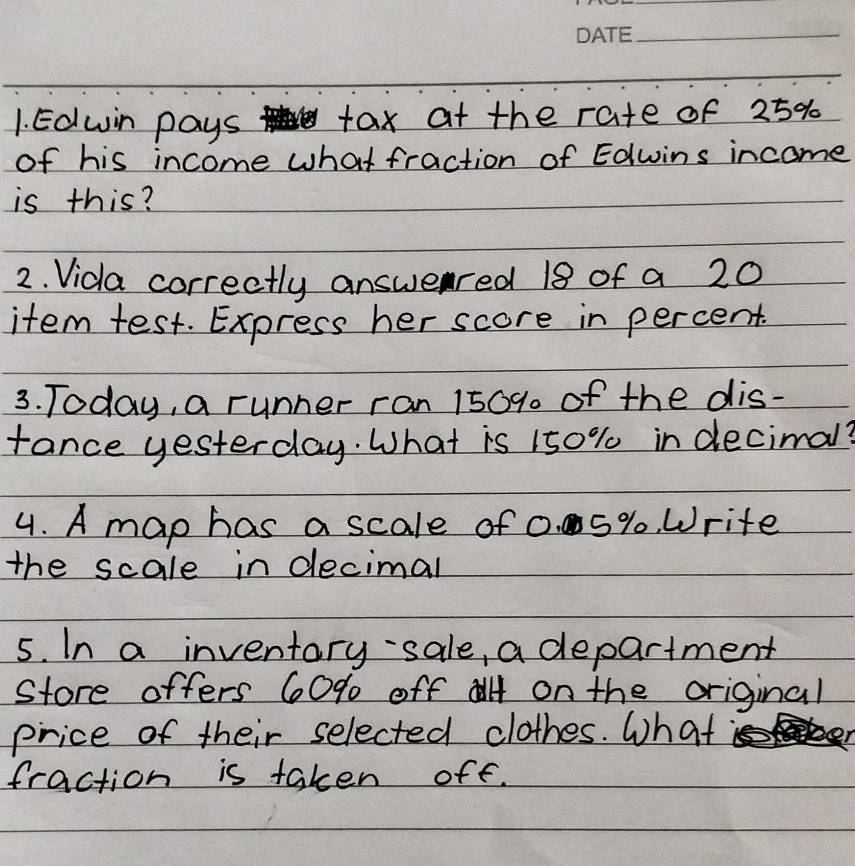 DATE
1. Edwin pays tax at the rate of 25%
of his income what fraction of Edwins income
is this?
2. Vida correctly answered 18 of a 20
item test. Express her score in percent.
3. Today, a runner ran 150% of the dis-
tance yesterday. What is 150% in decimal?
4. A map has a scale of 0.5%. Write
the scale in decimal
5. In a inventory-sale, a department
store offers 60% off on the original
price of their selected clothes. What
fraction is taken off.